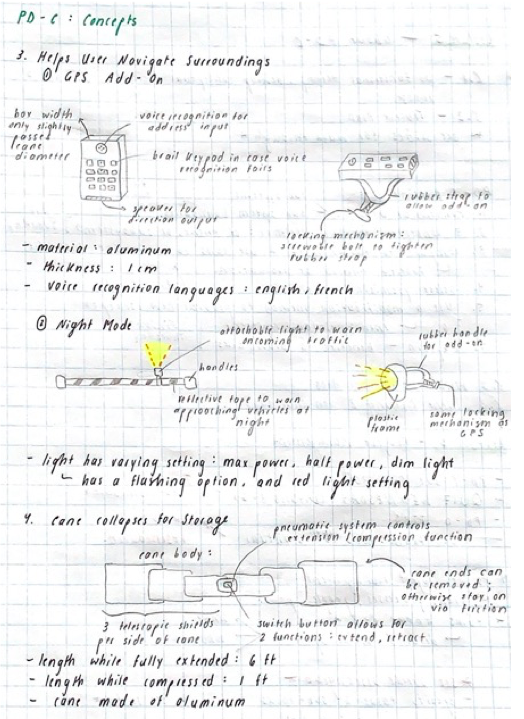 PD-C : Concepts
3. Helps User Navigate Surroundings
① GPS Add-On
box width
only slightly
passed
cane
diameter
voice recognition for
address input
brail keypad in case voice
recognition fails
speaker for
direction output
rubber strap to
allow add-on
locking mechanism:
screwable bolt to tighten
rubber strap
- material: aluminum
- thickness: 1 cm
- voice recognition languages: english, french
② Night Mode
attachable light to warn
oncoming traffic
handles
reflective tape to warn
approaching vehicles at
night
rubber handle
for add-on
plastic
frame
same locking
mechanism as
GPS
- light has varying setting: max power, half power, dim light
has a flashing option, and red light setting
4. Cane collapses for Storage
pneumatic system controls
extension/compression function
cane body:
cane ends can
be removed;
otherwise stay on
via friction
3 telescopic shields
per side of cane
switch button allows for
2 functions: extend, retract
- length while fully extended: 6 ft
- length while compressed: 1 ft
- cane made of aluminum